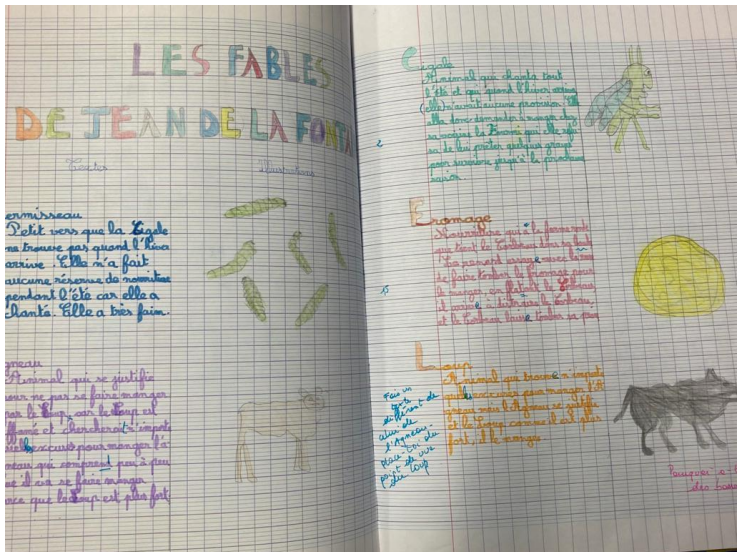 LES FABLES
DE JEAN DE LA FONTA
Textes
Illustrations
ermisseau
Petit vers que la Cigale
ne trouve pas quand l'hiver
arrive. Elle n'a fait
aucune réserve de nourriture
pendant l'été car elle a
chanté. Elle a très faim.
gneau
Animal qui se justifie
our ne pas se faire manger
par le Loup, car le Loup est
ffamé et chercherait n'importe
excuse pour manger l'A
neau qui comprend peu à peu
il va se faire manger
ce que le Loup est plus fort
Cigale
Animal qui chanta tout
l'été et qui quand l'hiver arriva
(elle) n'avait aucune provision. Elle
alla donc demander à manger chez
sa voisine la Fourmi qui elle refu
sa de lui prêter quelques grains
pour survivre jusqu'à la prochaine
saison.
2
Fromage
Nourriture qui à la forme ronde
que tient le Corbeau dans sa
renard essaye avec
de faire tomber le fromage pour
le manger, en flattant le
il arrive à le Corbeau,
et le Corbeau laisse tomber sa
Loup
Animal qui trouve n'importe
quelle excuse pour manger l'A
gneau mais l'Agneau se justifie
et le Loup comme il est plus
fort, il le mange.
Fais un
texte
différent de
celui de
l'Agneau.
place-toi du
point de vue
du Loup
Pourquoi
des